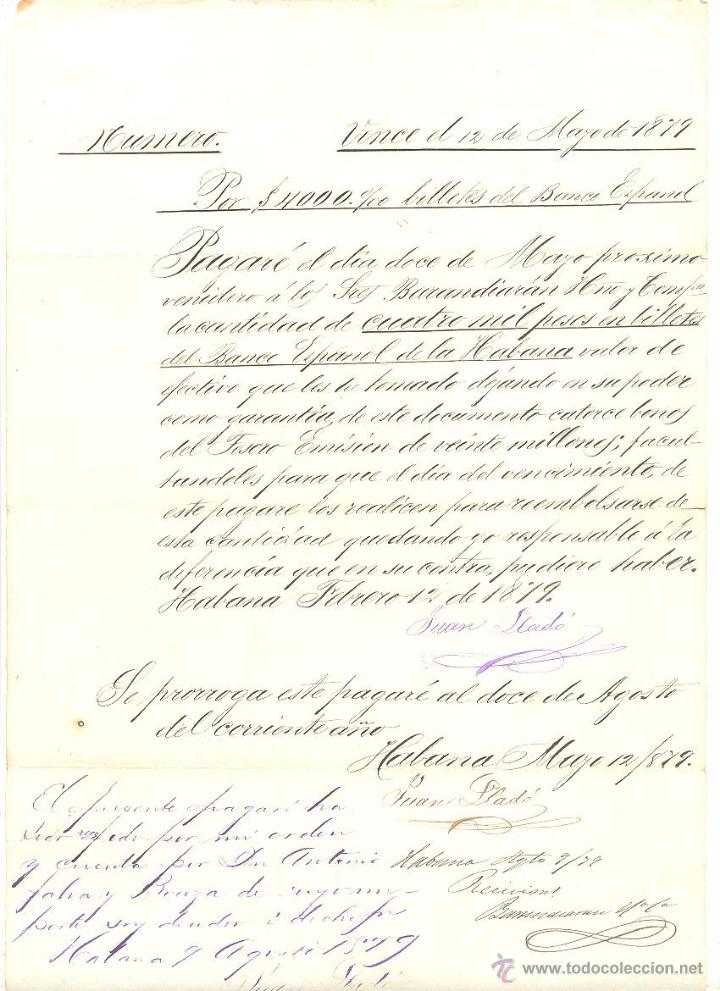 Numero. Vince el 12 de Mayo de 1879
Por $4000. %00 billetes del Banco Español
Pagaré el dia doce de Mayo proximo
venidero á los Sres Barandiarán Hno y Compa
la cantidad de cuatro mil pesos en billetes
del Banco Español de la Habana valor de
efectivo que les he tomado dejando en su poder
como garantía, de este documento catorce bonos
del Tesoro Emisión de veinte millones; facul-
tandoles para que el dia del vencimiento, de
este pagare los realicen para reembolsarse de
esta cantidad quedando yo responsable á la
diferencia que en su contra, pudiere haber.
Habana Febrero 12 de 1879.
Juan Lladó
Se prorroga este pagaré al doce de Agosto
del corriente año
Habana Mayo 12/879.
Juan Lladó
El presente pagaré ha
sido por mi orden
y cuenta por Dn Antonio
y de cuyo im-
porte soy deudor á dicho
Habana 9 Agosto 1879
Juan Lladó
Habana Agto 9/79
Recivimos
Barandiaran Ho Ca
www.todocoleccion.net